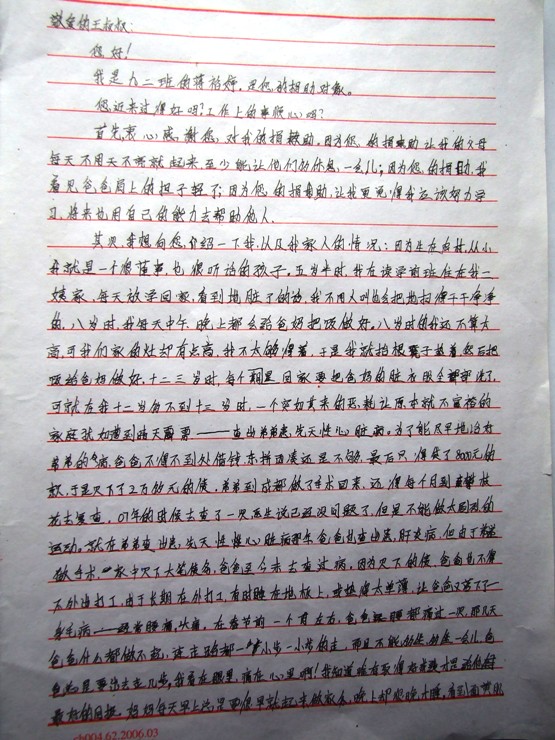 敬爱的王叔叔:
您好!
我是八二班的蒋裕婷,是您的捐助对象。
您近来过得好吗?工作上的事顺心吗?
首先衷心感谢您,对我的捐助。因为您的捐助让我的父母
每天不用天不亮就起来至少能让他们多休息一会儿;因为您的捐助,我
看见爸爸肩上的担子轻了;因为您的捐助,让我更懂得我应该努力学
习,将来也用自己的能力去帮助他人。
其次我想向您介绍一下我以及我家人的情况:因为生在农村,从小
我就是一个懂事也很听话的孩子。五岁半时,我在读学前班住在我
姨家,每天放学回家,看到地脏了的话,我不用人叫也会把地扫得干干净净
的,八岁时,我每天中午、晚上都会给爸妈把饭做好。八岁时的我还不算太
高,可我们家的灶却有点高,我不太够得着,于是我就抬根凳子垫着然后把
饭给爸妈做好,十二三岁时,每个期回家要把爸妈的脏衣服全部洗了,
可就在我十二岁多不到十三岁时,一个突如其来的恶耗让原本就不富裕的
家庭犹如遭到晴天霹雳——查出弟弟患先天性心脏病。为了能尽早地治好
弟弟的病,爸爸不得不到处借钱东拼西凑还是不够,最后只得贷了8000元的
款,于是欠下了2万多元的债,弟弟到成都做了手术回来,还得每个月到攀枝
花去复查,07年的时候去查了一次医生说已经没问题了,但是不能做太剧烈的
运动。就在弟弟查出患先天性心脏病那年爸爸也查出患肝炎病,但由于弟弟
做手术,家中欠下大笔债务,爸爸至今未去查过病,因为欠下的债,爸爸也不得
不外出打工,由于长期在外打工,有时睡在地板上,或被褥太单薄,让爸爸又落下了一
身毛病——经常腰痛,头痛,在春节前一个月左右,爸爸腰痛都痛过一次,那几天
爸爸什么都做不起,连走路都一小步一小步的走,而且不能多休息一会儿,爸
爸总是要出去走几步,我看在眼里,痛在心里啊!我知道唯有取得好成绩才是给他们
最好的回报。妈妈每天早上总是要很早就起来做家务,晚上却很晚才睡,看到